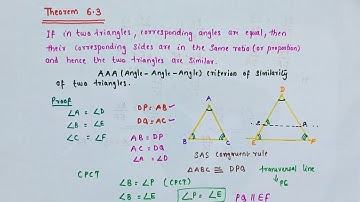 Theorem 6.3
If in two triangles, corresponding angles are equal, then
their corresponding sides are in the same ratio (or proportion)
and hence the two triangles are Similar.
AAA (Angle-Angle-Angle) criterion of Similarity
of two triangles.
Proof
∠A = ∠D
∠B = ∠E
∠C = ∠F
DP = AB
DQ = AC
AB = DP
AC = DQ
∠A = ∠D
A
B
C
D
P
Q
E
F
SAS Congruent rule
△ABC ≅ DPQ
transversal line
PE
CPCT
∠B = ∠P (CPCT)
∠B = ∠E
∠P = ∠E
PQ || EF